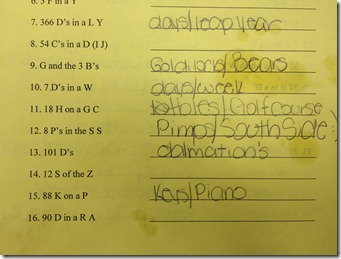 6. 3 F in a Y
7. 366 D's in a L Y days/leap year
8. 54 C's in a D (I J)
9. G and the 3 B's Goldilocks/Bears
10. 7 D's in a W days/week
11. 18 H on a G C holes/Golfcourse
12. 8 P's in the S S Pimps/South Side :)
13. 101 D's dalmation's
14. 12 S of the Z
15. 88 K on a P Keys/Piano
16. 90 D in a R A